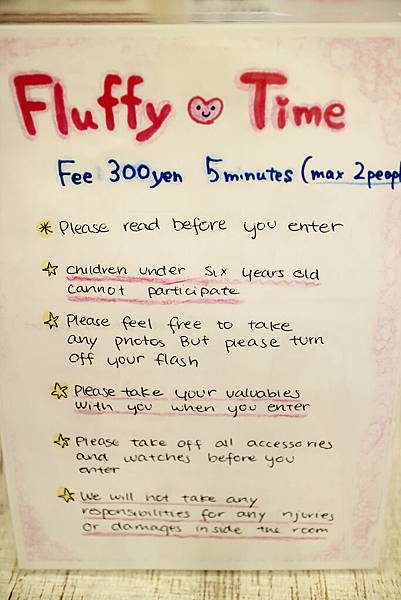 Fluffy Time
Fee 300yen 5minutes (max 2peopl
* Please read before you enter
☆ Children under six years old
cannot participate
☆ Please feel free to take
any photos But please turn
off your flash
☆ Please take your valuables
with you when you enter
☆ Please take off all accessories
and watches before you
enter
☆ We will not take any
responsibilities for any njuries
or damages inside the room